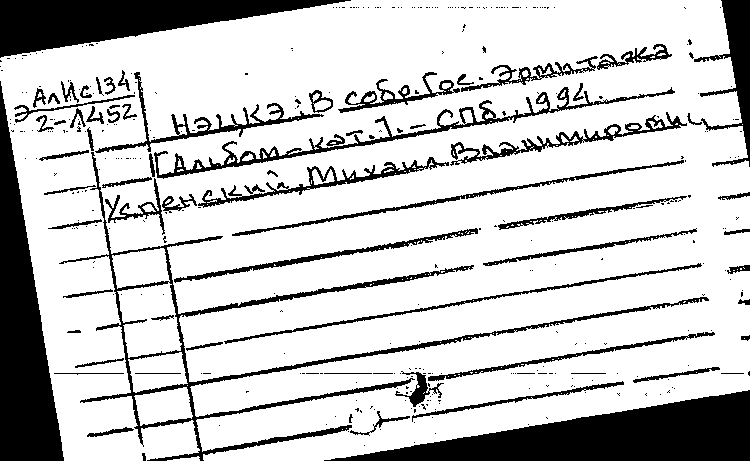 ЭАлИс134
2-Л452
НЭЦКЭ: В собр. Гос. Эрмитажа:
[Альбом-кат.]. - СПб., 1994.
Успенский, Михаил Владимирович